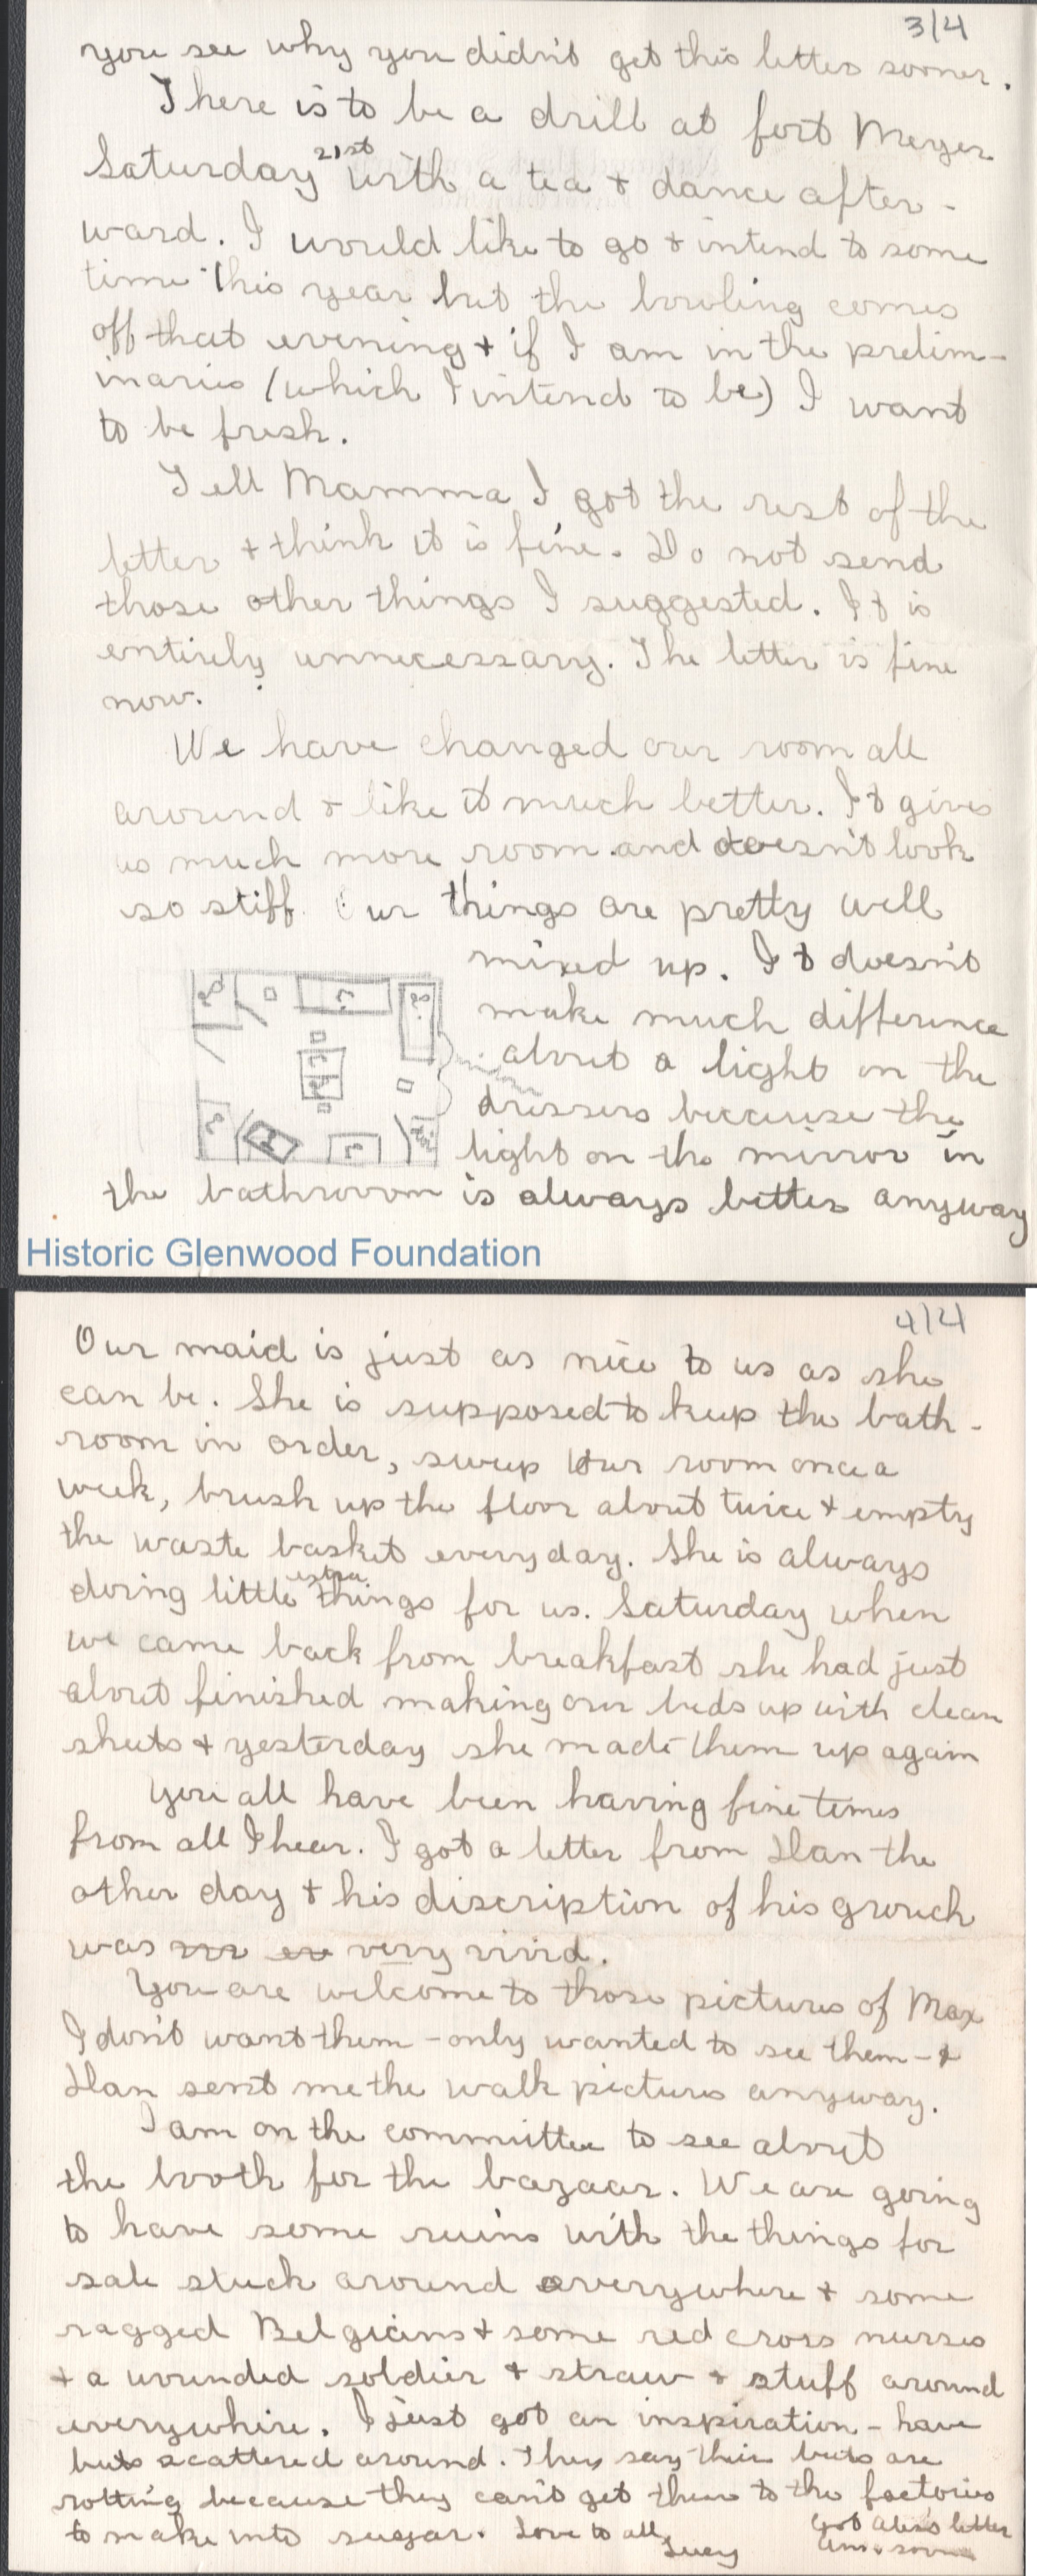 3/4
you see why you didn't get this letter sooner.
There is to be a drill at fort Meyer
Saturday 21st with a tea + dance after-
ward. I would like to go + intend to some
time this year but the bowling comes
off that evening + if I am in the prelim-
inaries (which I intend to be) I want
to be fresh.
Tell Mamma I got the rest of the
letter + think it is fine. Do not send
those other things I suggested. It is
entirely unnecessary. The letter is fine
now.
We have changed our room all
around + like it much better. It gives
us much more room and doesn't look
so stiff. Our things are pretty well
mixed up. It doesn't
make much difference
about a light on the
dressers because the
light on the mirror in
the bathroom is always better anyway
Historic Glenwood Foundation
4/4
Our maid is just as nice to us as she
can be. She is supposed to keep the bath-
room in order, sweep our room once a
week, brush up the floor about twice + empty
the waste basket everyday. She is always
doing little extra things for us. Saturday when
we came back from breakfast she had just
about finished making our beds up with clean
sheets + yesterday she made them up again
You all have been having fine times
from all I hear. I got a letter from Han the
other day + his discription of his grouch
was very vivid.
You are welcome to those pictures of Max
I don't want them - only wanted to see them - +
Han sent me the walk pictures anyway.
I am on the committee to see about
the booth for the bazaar. We are going
to have some ruins with the things for
sale stuck around everywhere + some
ragged Belgians + some red cross nurses
+ a wounded soldier + straw + stuff around
everywhere. I just got an inspiration - have
beets scattered around. They say their beets are
rotting because they can't get them to the factories
to make into sugar. Love to all,
Lucy
Got letter